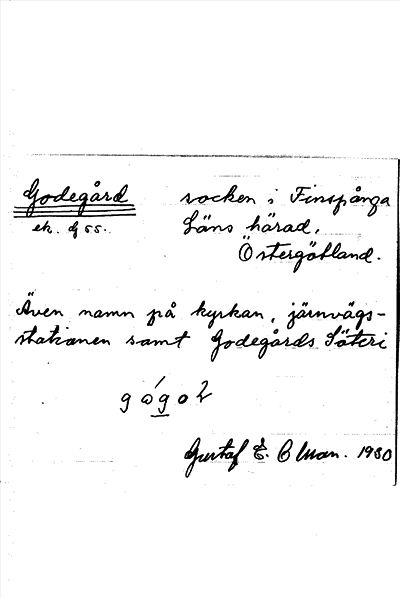 Godegård
socken i Finspånga
Läns härad,
Östergötland.
Även namn på kyrkan, järnvägs-
stationen samt Godegårds Säteri
Gustaf E. 1930